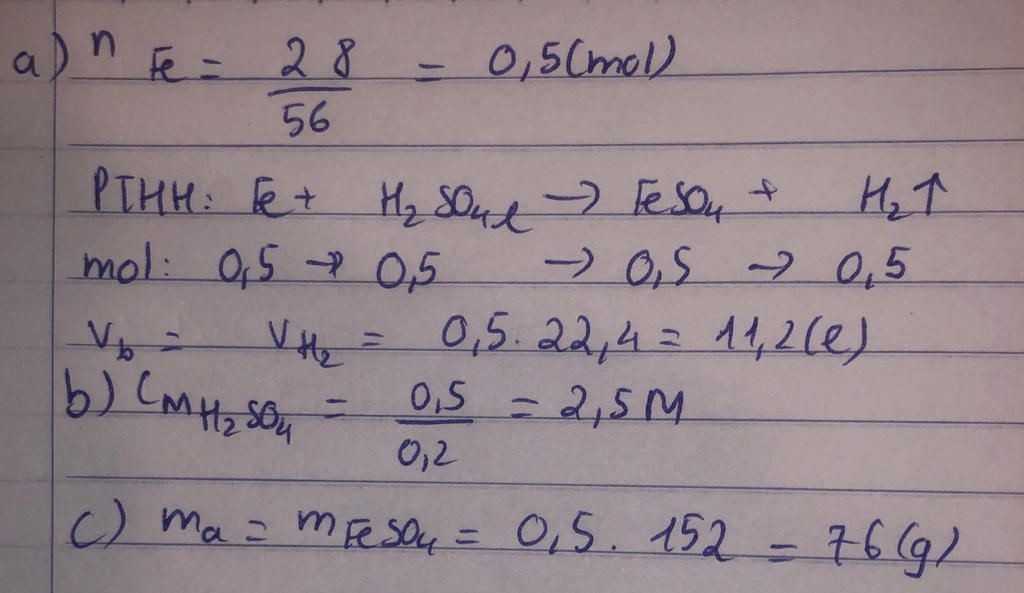 a) n Fe = 28/56 = 0,5(mol)
PTHH: Fe + H₂SO₄ l → FeSO₄ + H₂↑
mol: 0,5 → 0,5 → 0,5 → 0,5
V_b = V_H₂ = 0,5.22,4 = 11,2(l)
b) C_M H₂SO₄ = 0,5/0,2 = 2,5M
c) m_a = m_FeSO₄ = 0,5. 152 = 76(g)